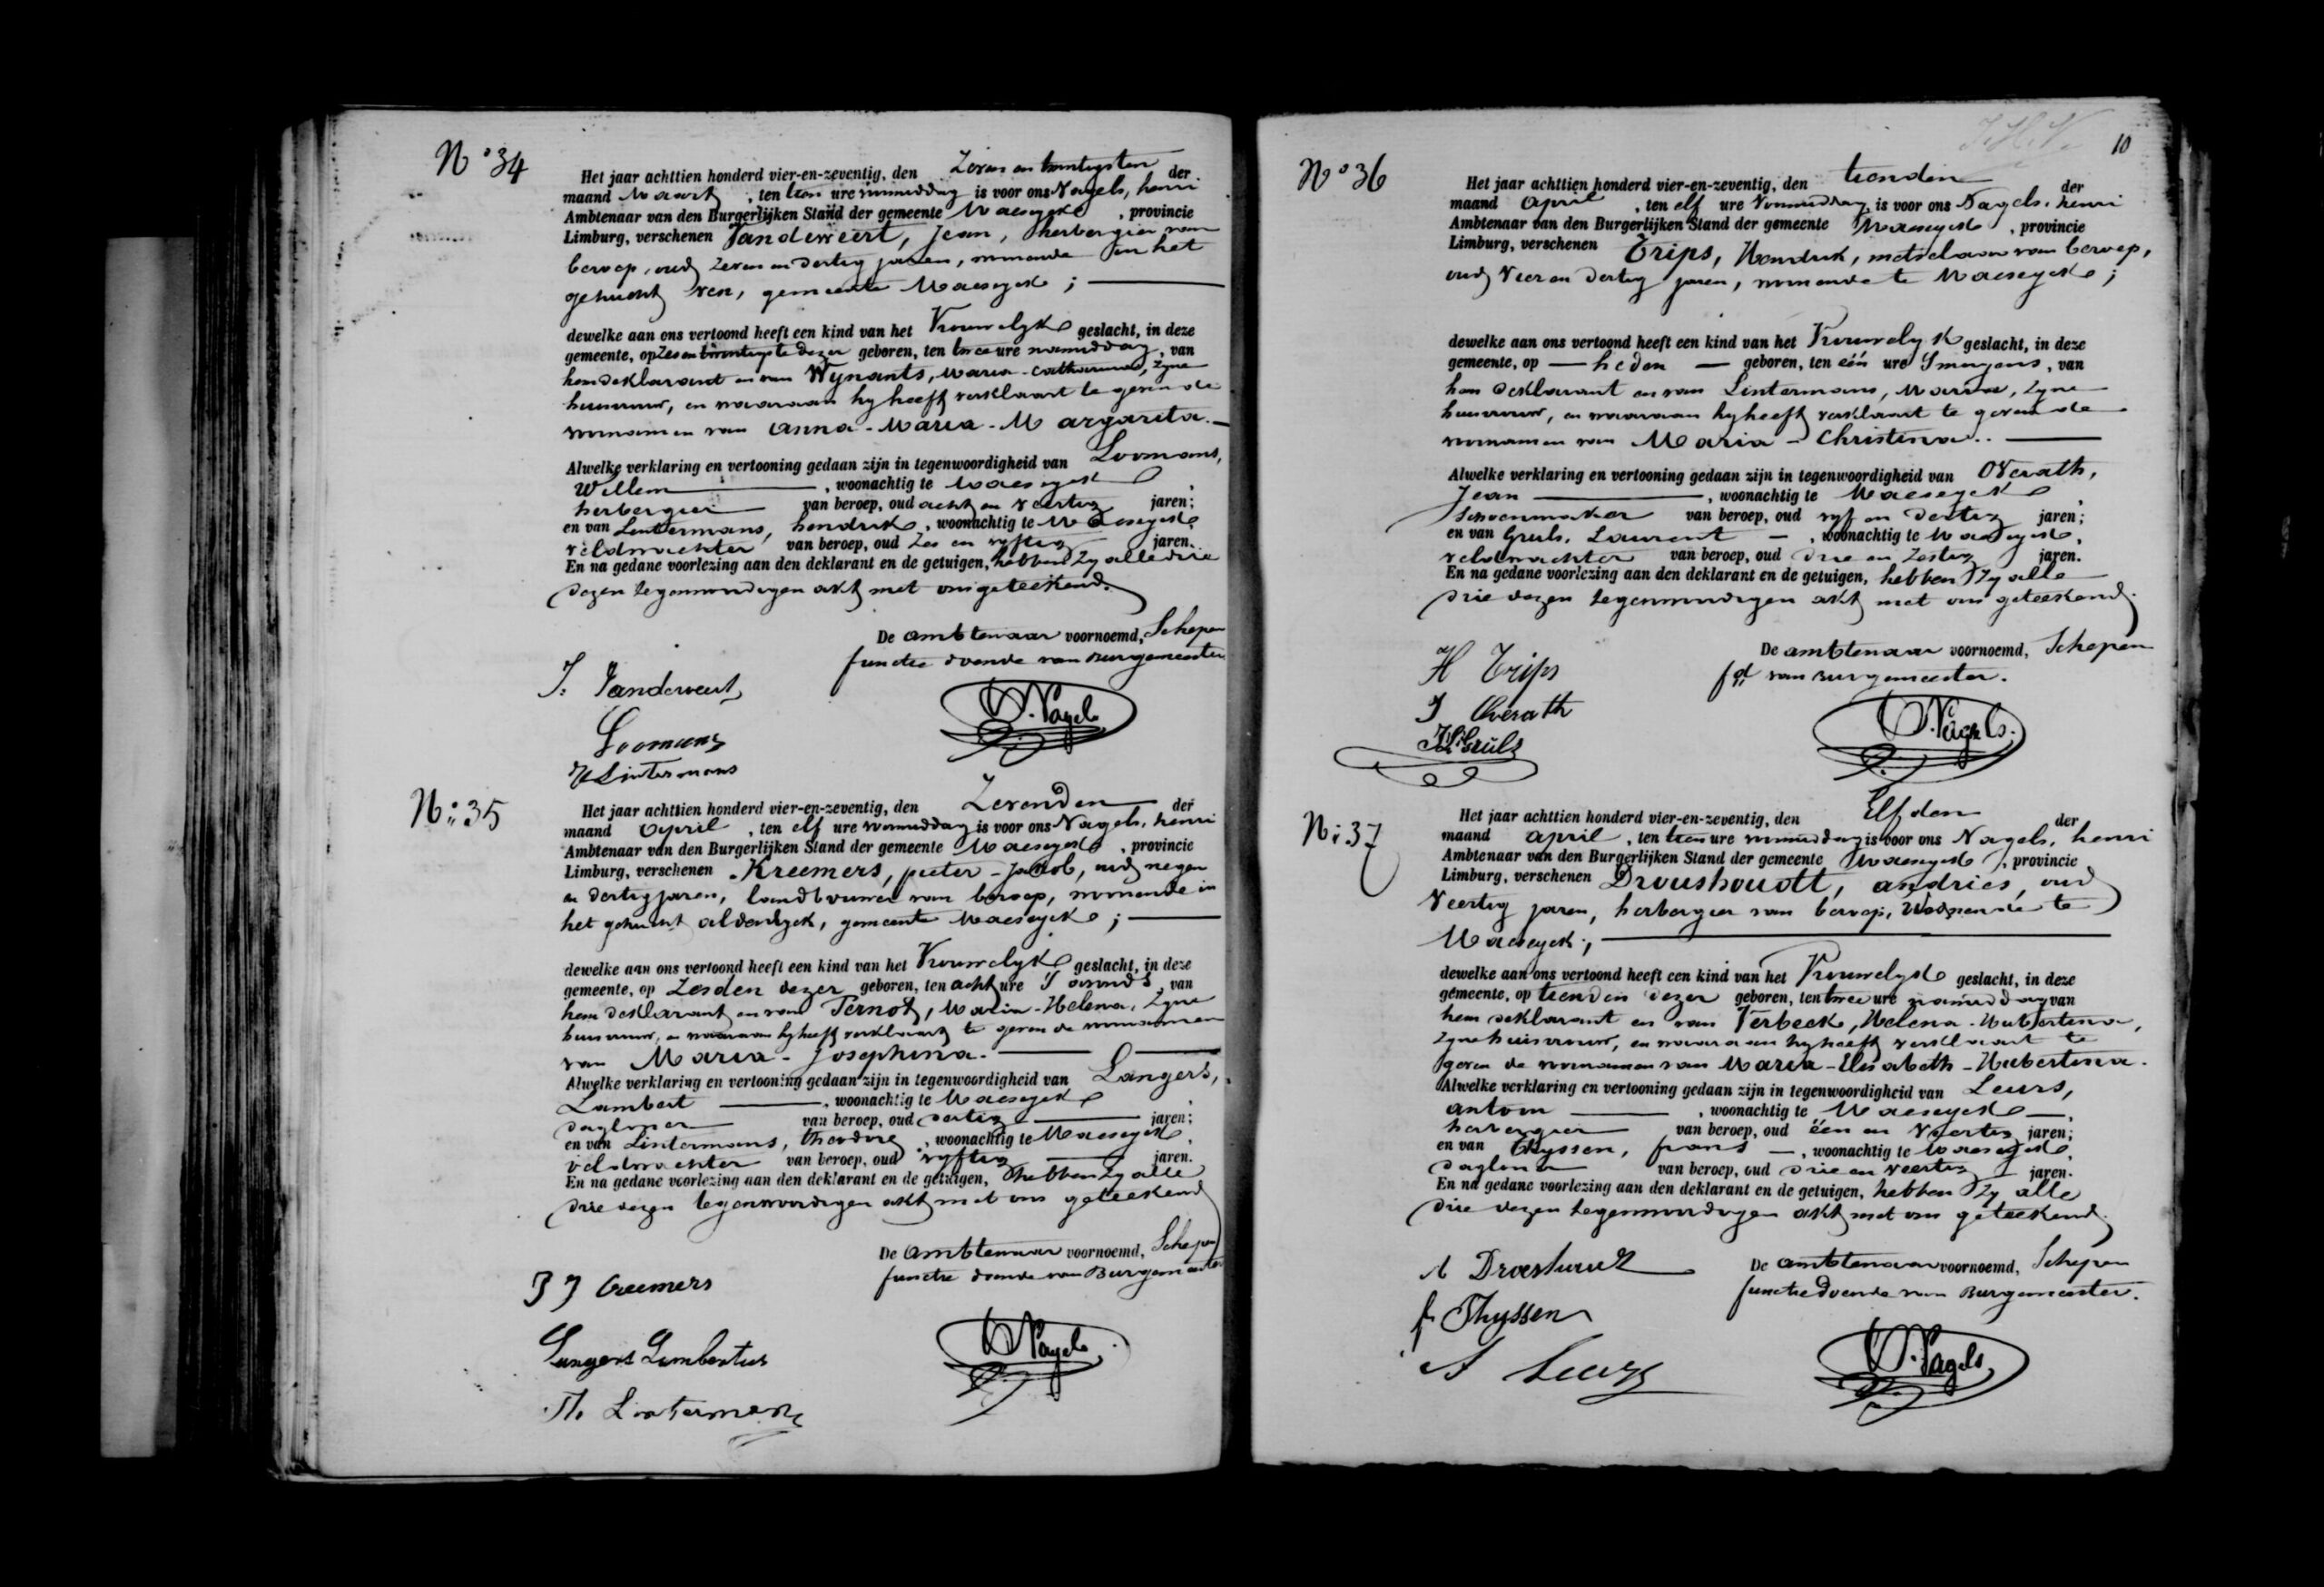 N° 34
Het jaar achttien honderd vier-en-zeventig, den Zeven en twintigsten der
maand Maart, ten tien ure voormiddag is voor ons Nagels, henri
Ambtenaar van den Burgerlijken Stand der gemeente Maeseyck, provincie
Limburg, verschenen Vandeweert, Jean, herbergier van
beroep, oud zeven en dertig jaren, wonende in het
gehucht ven, gemeente Maeseyck;
dewelke aan ons vertoond heeft een kind van het Vrouwelyk geslacht, in deze
gemeente, op zes en twintigste dezer geboren, ten twee ure namiddag, van
hem deklarant en van Wynants, Maria-Catharina, zyne
huisvrouw, en waaraan hy heeft verklaart te geven de
vornamen van Anna-Maria-Margarita.
Alwelke verklaring en vertooning gedaan zijn in tegenwoordigheid van Loomans,
Willem, woonachtig te Maeseyck,
herbergier van beroep, oud acht en veertig jaren;
en van Lintermans, hendrik, woonachtig te Maeseyck,
veldwachter van beroep, oud zes en vyftig jaren.
En na gedane voorlezing aan den deklarant en de getuigen, hebben zy alle drie
dezen tegenwoordigen akt met ons geteekend.
De ambtenaar voornoemd, Schepen
functie doende van Burgemeester
J. Vandeweert
Loomans
H Lintermans
H. Nagels
N° 35
Het jaar achttien honderd vier-en-zeventig, den Zevenden der
maand April, ten elf ure voormiddag is voor ons Nagels, henri
Ambtenaar van den Burgerlijken Stand der gemeente Maeseyck, provincie
Limburg, verschenen Kreemers, pieter-jacob, oud negen
en dertig jaren, landbouwer van beroep, wonende in
het gehucht aldeneyck, gemeente Maeseyck;
dewelke aan ons vertoond heeft een kind van het Vrouwelyk geslacht, in deze
gemeente, op Zesden dezer geboren, ten acht ure S'avonds, van
hem deklarant en van Pernot, Maria-Helena, zyne
huisvrouw, en waaraan hy heeft verklaart te geven de vornamen
van Maria-Josephina.
Alwelke verklaring en vertooning gedaan zijn in tegenwoordigheid van Langers,
Lambert, woonachtig te Maeseyck,
dagloner van beroep, oud dertig jaren;
en van Lintermans, theodore, woonachtig te Maeseyck,
veldwachter van beroep, oud vyftig jaren.
En na gedane voorlezing aan den deklarant en de getuigen, hebben zy alle
drie dezen tegenwoordigen akt met ons geteekend
De ambtenaar voornoemd, Schepen
functie doende van Burgemeester
P J Creemers
Langers Lambertus
Th. Lintermans
H. Nagels
10
N° 36
Het jaar achttien honderd vier-en-zeventig, den tienden der
maand April, ten elf ure Voormiddag, is voor ons Nagels, henri
Ambtenaar van den Burgerlijken Stand der gemeente Maeseyck, provincie
Limburg, verschenen Trips, Hendrik, metselaar van beroep,
oud vier en dertig jaren, wonende te Maeseyck;
dewelke aan ons vertoond heeft een kind van het Vrouwelyk geslacht, in deze
gemeente, op heden geboren, ten één ure S'morgens, van
hem deklarant en van Lintermans, Maria, zyne
huisvrouw, en waaraan hy heeft verklaart te geven de
vornamen van Maria-Christina.
Alwelke verklaring en vertooning gedaan zijn in tegenwoordigheid van Overath,
Jean, woonachtig te Maeseyck,
schoenmaker van beroep, oud vyf en dertig jaren;
en van Gruls, Laurent, woonachtig te Maeseyck,
veldwachter van beroep, oud drie en zestig jaren.
En na gedane voorlezing aan den deklarant en de getuigen, hebben zy alle
drie dezen tegenwoordigen akt met ons geteekend.
De ambtenaar voornoemd, Schepen
fd van Burgemeester.
H Trips
J Overath
JL Gruls
H. Nagels.
N° 37
Het jaar achttien honderd vier-en-zeventig, den Elfden der
maand april, ten tien ure voormiddag is voor ons Nagels, henri
Ambtenaar van den Burgerlijken Stand der gemeente Maeseyck, provincie
Limburg, verschenen Droushoudt, andries, oud
Veertig jaren, herbergier van beroep, Woonende te
Maeseyck;
dewelke aan ons vertoond heeft een kind van het Vrouwelyk geslacht, in deze
gemeente, op tienden dezer geboren, ten twee ure namiddag van
hem deklarant en van Verbeek, Helena-Hubertina,
zyne huisvrouw, en waaraan hy heeft verklaart te
geven de vornamen van Maria-Elisabeth-Hubertina.
Alwelke verklaring en vertooning gedaan zijn in tegenwoordigheid van Leurs,
antoon, woonachtig te Maeseyck,
herbergier van beroep, oud één en Veertig jaren;
en van Thyssen, frans, woonachtig te Maeseyck,
dagloner van beroep, oud drie en veertig jaren.
En na gedane voorlezing aan den deklarant en de getuigen, hebben zy alle
drie dezen tegenwoordigen akt met ons geteekend.
De ambtenaar voornoemd, Schepen
functie doende van Burgemeester.
A Droeshoudt
f Thyssen
A Leurs
H. Nagels